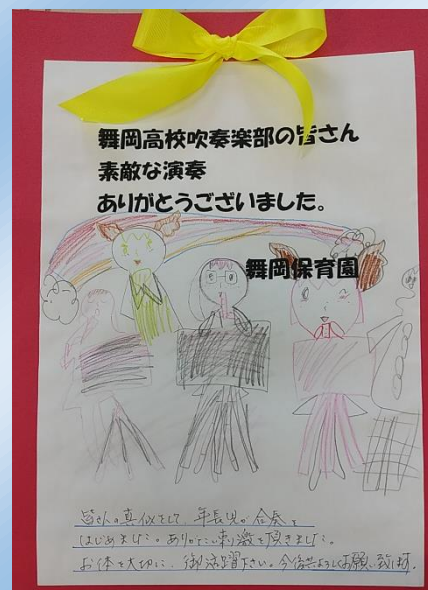 舞岡高校吹奏楽部の皆さん
素敵な演奏
ありがとうございました。
舞岡保育園
皆さんの真似をして、年長児が合奏を
はじめました。ありがたい刺激を頂きました。
お体を大切に、御活躍下さい。今後共よろしくお願い致します。